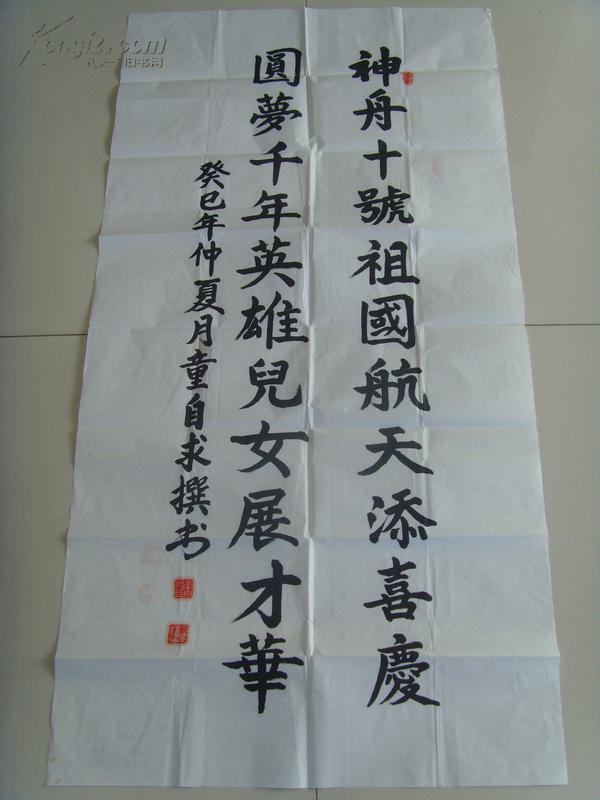 神舟十號祖國航天添喜慶
圓夢千年英雄兒女展才華
癸巳年仲夏月童自求撰书